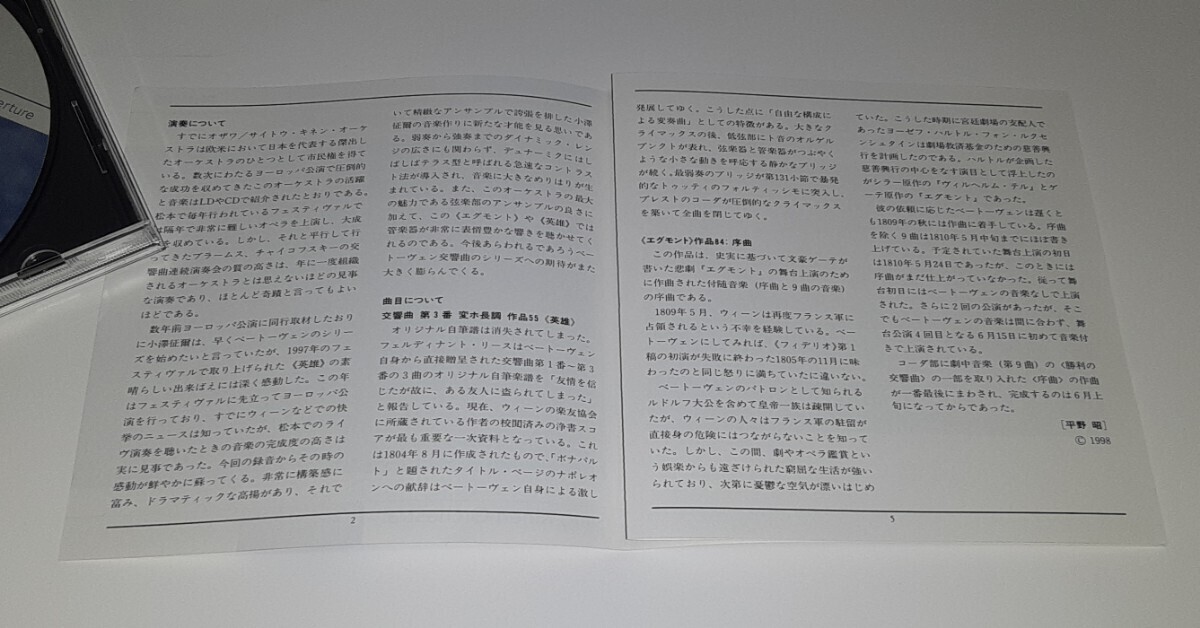 erture
演奏について
すでにオザワ/サイトウ・キネン・オーケ
ストラは欧米において日本を代表する傑出し
たオーケストラのひとつとして市民権を得て
いる。数次にわたるヨーロッパ公演で圧倒的
な成功を収めてきたこのオーケストラの活躍
と音楽はLDやCDで紹介されたとおりである。
松本で毎年行われているフェスティヴァルで
は隔年で非常に難しいオペラを上演し、大成
を収めている。しかし、それと平行して行
ってきたブラームス、チャイコフスキーの交
響曲連続演奏会の質の高さは、年に一度組織
されるオーケストラとは思えないほどの見事
な演奏であり、ほとんど奇蹟と言ってもよい
ほどである。
数年前ヨーロッパ公演に同行取材したおり
に小澤征爾は、早くベートーヴェンのシリー
ズを始めたいと言っていたが、1997年のフェ
スティヴァルで取り上げられた《英雄》の素
晴らしい出来ばえには深く感動した。この年
はフェスティヴァルに先立ってヨーロッパ公
演を行っており、すでにウィーンなどでの快
挙のニュースは知っていたが、松本でのライ
ヴ演奏を聴いたときの音楽の完成度の高さは
実に見事であった。今回の録音からその時の
感動が鮮やかに蘇ってくる。非常に構築感に
富み、ドラマティックな高揚があり、それで
いて精緻なアンサンブルで誇張を排した小澤
征爾の音楽作りに新たな才能を見る思いであ
る。弱奏から強奏までのダイナミック・レン
ジの広さにも関わらず、デュナーミクにはし
ばしばテラス型と呼ばれる急速なコントラス
ト法が導入され、音楽に大きなめりはりが生
まれている。また、このオーケストラの最大
の魅力である弦楽部のアンサンブルの良さに
加えて、この《エグモント》や《英雄》では
管楽器が非常に表情豊かな響きを聴かせてく
れるのである。今後あらわれるであろうベー
トーヴェン交響曲のシリーズへの期待がまた
大きく膨らんでくる。
曲目について
交響曲 第3番 変ホ長調 作品55《英雄》
オリジナル自筆譜は消失されてしまった。
フェルディナント・リースはベートーヴェン
自身から直接贈呈された交響曲第1番~第3
番の3曲のオリジナル自筆楽譜を「友情を信
じたが故に、ある友人に盗られてしまった」
と報告している。現在、ウィーンの楽友協会
に所蔵されている作者の校閲済みの浄書スコ
アが最も重要な一次資料となっている。これ
は1804年8月に作成されたもので、「ボナパル
ト」と題されたタイトル・ページのナポレオ
ンへの献辞はベートーヴェン自身による激し
2
発展してゆく。こうした点に「自由な構成に
よる変奏曲」としての特徴がある。大きなク
ライマックスの後、低弦部にト音のオルゲル
プンクトが表れ、弦楽器と管楽器がつぶやく
ような小さな動きを呼応する静かなブリッジ
が続く。最弱奏のブリッジが第131小節で爆発
的なトゥッティのフォルティッシモに突入し、
プレストのコーダが圧倒的なクライマックス
を築いて全曲を閉じてゆく。
《エグモント》作品84:序曲
この作品は、史実に基づいて文豪ゲーテが
書いた悲劇『エグモント』の舞台上演のため
に作曲された付随音楽(序曲と9曲の音楽)
の序曲である。
1809年5月、ウィーンは再度フランス軍に
占領されるという不幸を経験している。ベー
トーヴェンにしてみれば、《フィデリオ》第1
稿の初演が失敗に終わった1805年の11月に味
わったのと同じ怒りに満ちていたに違いない。
ベートーヴェンのパトロンとして知られる
ルドルフ大公を含めて皇帝一族は疎開してい
たが、ウィーンの人々はフランス軍の駐留が
直接身の危険にはつながらないことを知って
いた。しかし、この間、劇やオペラ鑑賞とい
う娯楽からも遠ざけられた窮屈な生活が強い
られており、次第に憂鬱な空気が漂いはじめ
ていた。こうした時期に宮廷劇場の支配人で
あったヨーゼフ・ハルトル・フォン・ルクセ
ンシュタインは劇場救済基金のための慈善興
行を計画したのである。ハルトルが企画した
慈善興行の中心をなす演目として浮上したの
がシラー原作の『ヴィルヘルム・テル』とゲ
ーテ原作の『エグモント』であった。
彼の依頼に応じたベートーヴェンは遅くと
も1809年の秋には作曲に着手している。序曲
を除く9曲は1810年5月中旬までにほぼ書き
上げている。予定されていた舞台上演の初日
は1810年5月24日であったが、このときには
序曲がまだ仕上がっていなかった。従って舞
台初日にはベートーヴェンの音楽なしで上演
された。さらに2回の公演があったが、そこ
でもベートーヴェンの音楽は間に合わず、舞
台公演4回目となる6月15日に初めて音楽付
きで上演されている。
コーダ部に劇中音楽(第9曲)の〈勝利の
交響曲〉の一部を取り入れた〈序曲〉の作曲
が一番最後にまわされ、完成するのは6月上
旬になってからであった。
[平野 昭]
© 1998
5